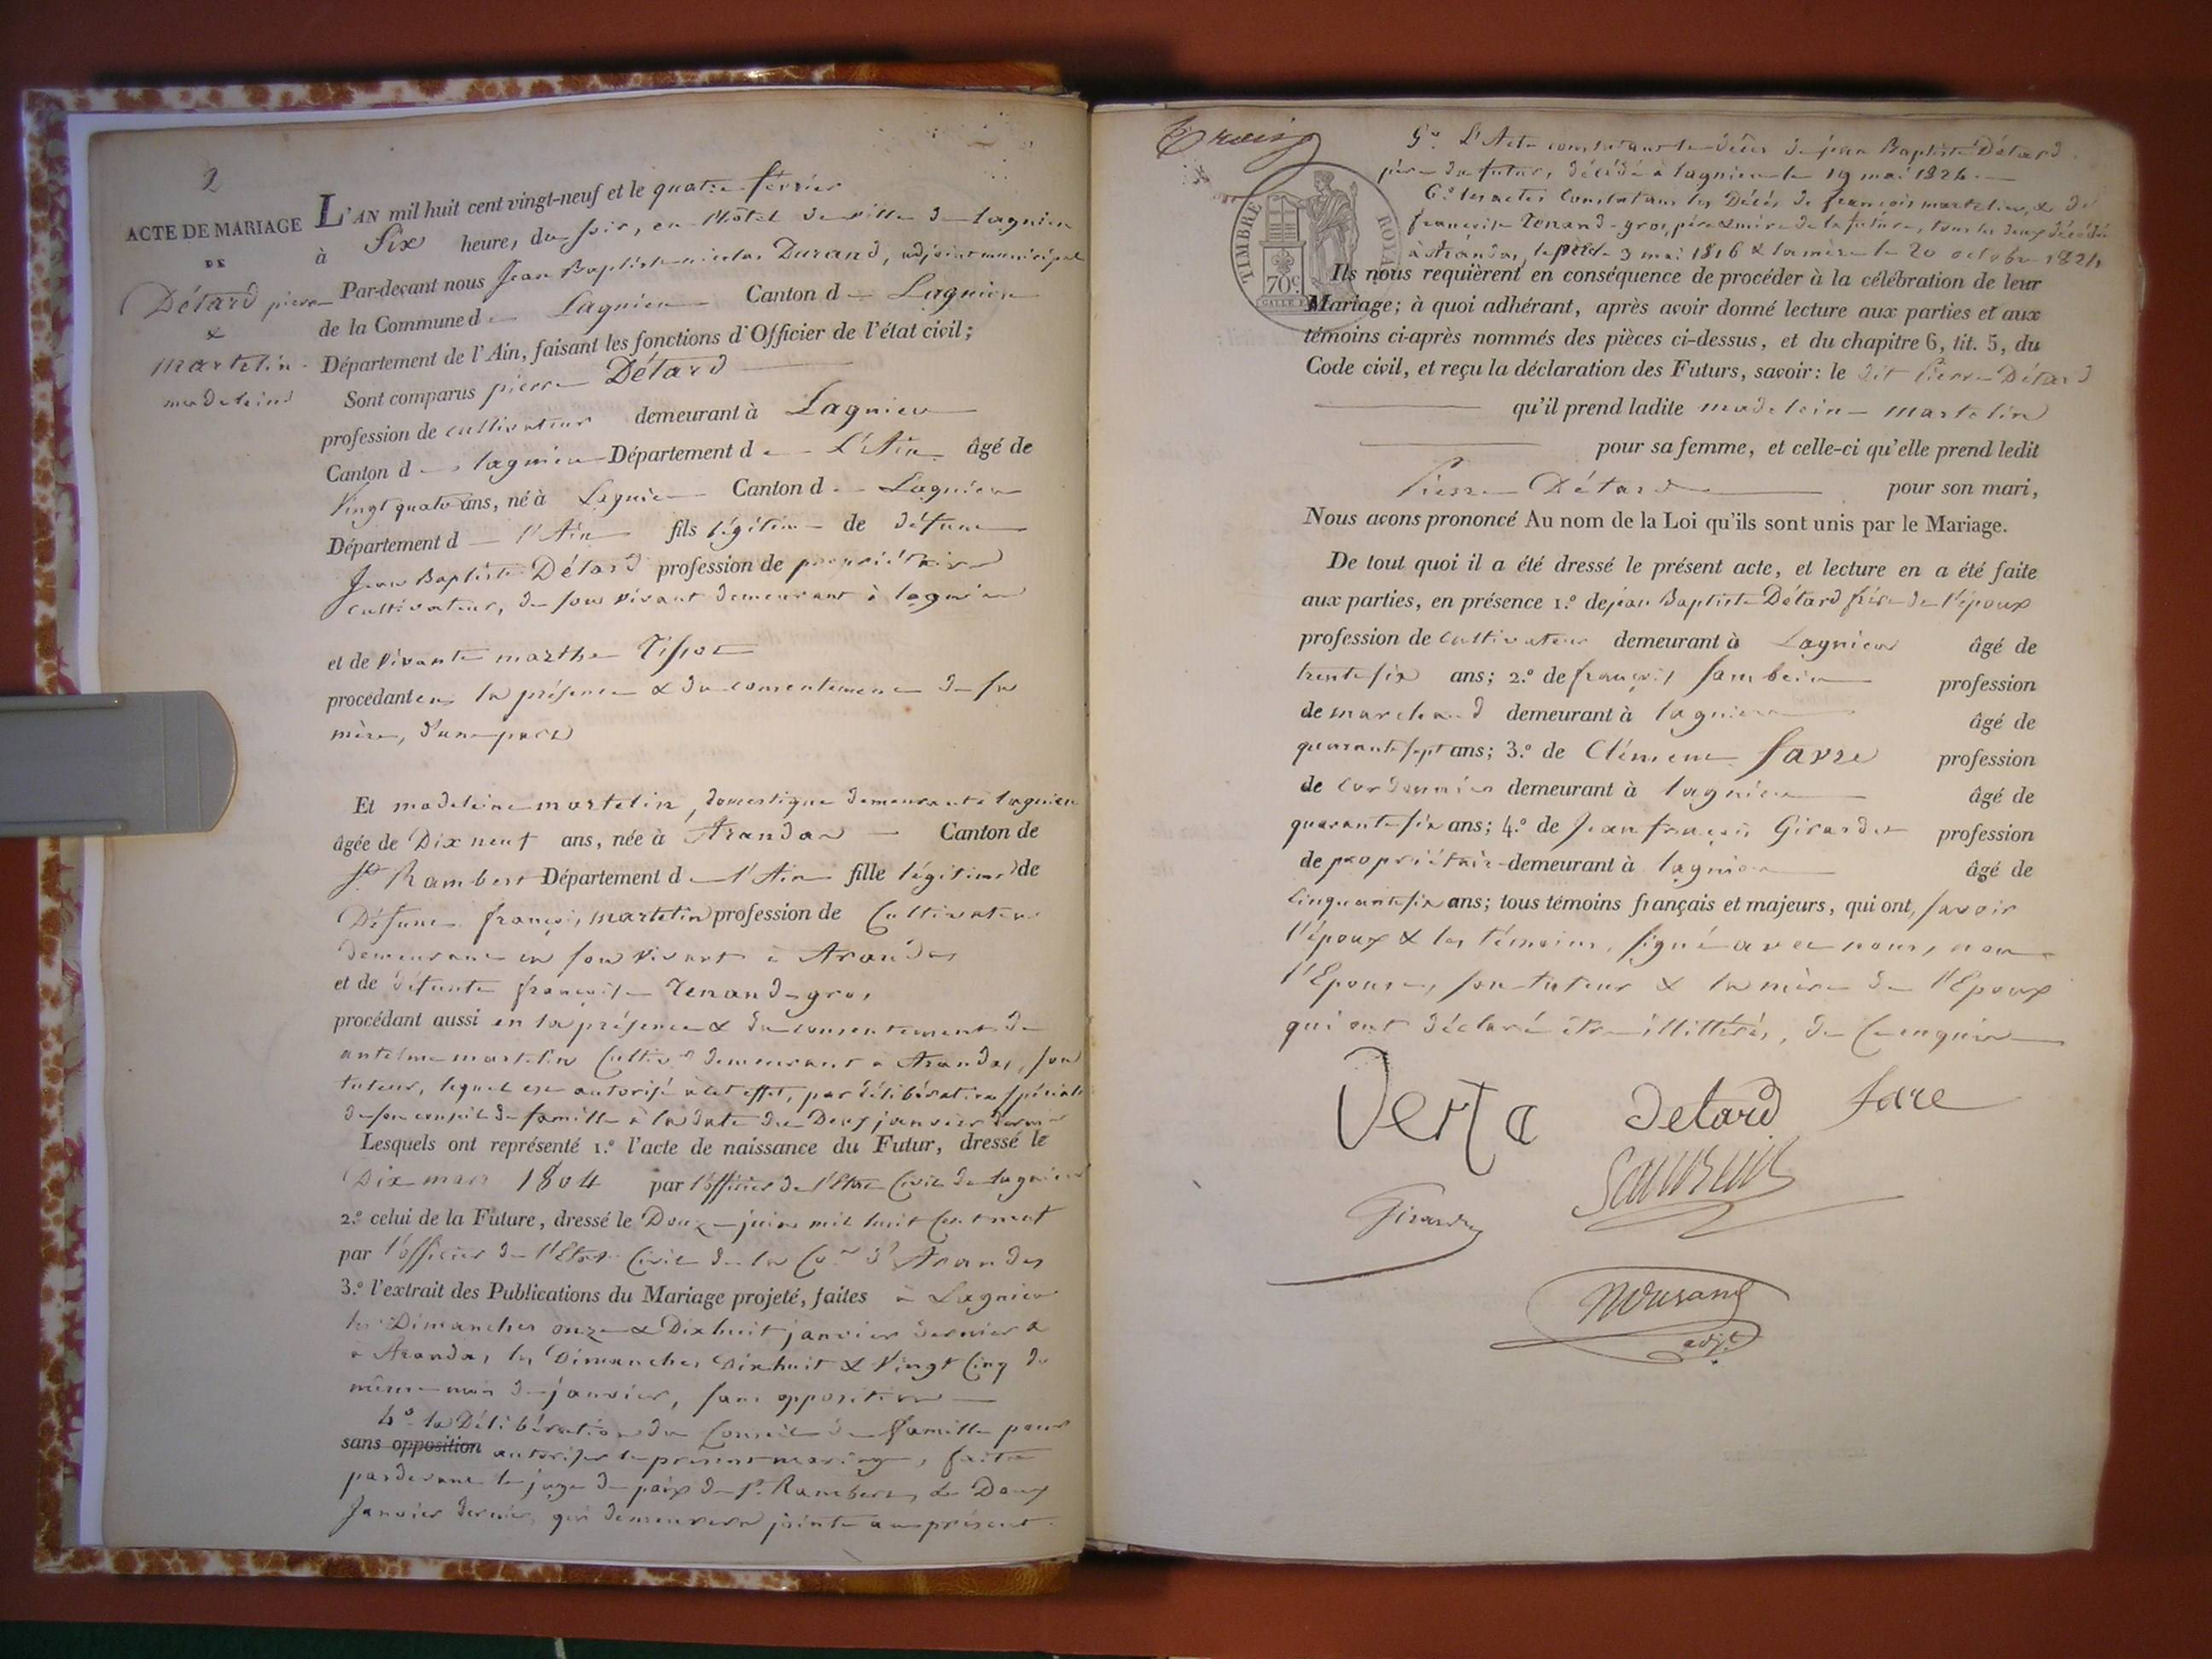 2
ACTE DE MARIAGE
DE
Détard pierre
&
Martelin
madeleine
L'AN mil huit cent vingt-neuf et le quatre février
à Six heure, du soir, en l'hôtel de ville de lagnieu
Par-devant nous Jean Baptiste nicolas Durand, adjoint municipal
de la Commune de Lagnieu Canton de Lagnieu
Département de l'Ain, faisant les fonctions d'Officier de l'état civil;
Sont comparus pierre Détard
profession de cultivateur demeurant à Lagnieu
Canton de lagnieu Département de L'Ain âgé de
Vingt quatre ans, né à Lagnieu Canton de Lagnieu
Département d l'Ain fils légitime de défunt
Jean Baptiste Détard profession de propriétaire
cultivateur, de son vivant demeurant à lagnieu
et de vivante marthe Tissot
procédant en la présence & du consentement de sa
mère, d'une part
Et madeleine martelin, domestique demeurant à lagnieu
âgée de Dix neuf ans, née à Arandas Canton de
St Rambert Département d l'Ain fille légitime de
Défunt françois martelin profession de Cultivateur
demeurant en son vivant à Arandas
et de défunte françoise Tenand-gros
procédant aussi en la présence & du consentement de
antelme martelin Cultivr demeurant à Arandas, son
tuteur, lequel est autorisé à cet effet, par délibération spéciale
de son conseil de famille à la date du Deux janvier dernier
Lesquels ont représenté 1.º l'acte de naissance du Futur, dressé le
Dix mars 1804 par l'officier de l'Etat Civil de lagnieu
2.º celui de la Future, dressé le Douze juin mil huit Cent neuf
par l'officier de l'Etat Civil de la Cne d'Arandas
3.º l'extrait des Publications du Mariage projeté, faites à Lagnieu
les Dimanches onze & Dix huit janvier dernier &
à Arandas, les Dimanches Dix huit & Vingt Cinq du
même mois de janvier, sans opposition
4º la Délibération du Conseil de famille pour
sans opposition autoriser le présent mariage, faite
pardevant le juge de paix de St. Rambert, le Deux
Janvier dernier, qui demeurera jointe au présent.
Trois
TIMBRE ROYAL
70c.
5º L'Acte constatant le décès de jean Baptiste Détard
père du futur, décédé à lagnieu le 19 mai 1824.
6º les actes Constatant les Décès de françois martelin, & de
françoise Tenand-gros, père & mère de la future, tous les deux décédés
à Arandas, le père le 3 mai 1816 & la mère le 20 octobre 1824
Ils nous requièrent en conséquence de procéder à la célébration de leur
Mariage; à quoi adhérant, après avoir donné lecture aux parties et aux
témoins ci-après nommés des pièces ci-dessus, et du chapitre 6, tit. 5, du
Code civil, et reçu la déclaration des Futurs, savoir: le dit Pierre Détard
qu'il prend ladite madeleine martelin
pour sa femme, et celle-ci qu'elle prend ledit
Pierre Détard pour son mari,
Nous avons prononcé Au nom de la Loi qu'ils sont unis par le Mariage.
De tout quoi il a été dressé le présent acte, et lecture en a été faite
aux parties, en présence 1.º de jean Baptiste Détard frère de l'époux
profession de Cultivateur demeurant à Lagnieu âgé de
trente six ans; 2.º de françois Sambein profession
de marchand demeurant à lagnieu âgé de
quarante sept ans; 3.º de Clément favre profession
de cordonnier demeurant à lagnieu âgé de
quarante six ans; 4.º de Jean françois Girardet profession
de propriétaire demeurant à lagnieu âgé de
Cinquante six ans; tous témoins français et majeurs, qui ont, savoir
l'époux & les témoins, signé avec nous, non
l'Epouse, son tuteur & la mère de l'Epoux
qui ont déclaré être illittérés, de Ce enquis
Detard
Girardet
NDurand
adjt